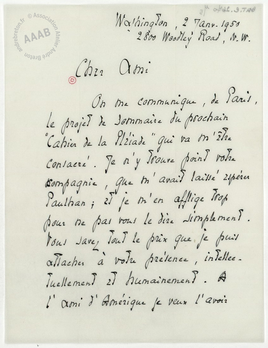 AAAB
Washington, 2 Janv. 1950
2800 Woodley Road, N.W.
Cher Ami
On me communique, de Paris,
le projet de sommaire du prochain
"Cahier de la Pléiade" qui va m'être
consacré. Je n'y trouve point votre
compagnie, que m'avait laissé espérer
Paulhan; et je m'en afflige trop
pour ne pas vous le dire simplement.
Vous savez tout le prix que je puis
attacher à votre présence, intellec-
tuellement et humainement. A
l'Ami d'Amérique je veux l'avoir